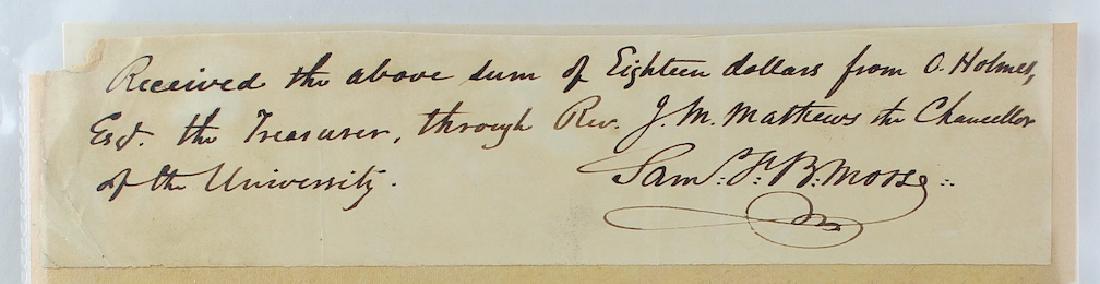 Received the above sum of Eighteen dollars from O. Holmes,
Esqr. the Treasurer, through Rev. J. M. Mathews the Chancellor
of the University.
Sam: F: B: Morse.